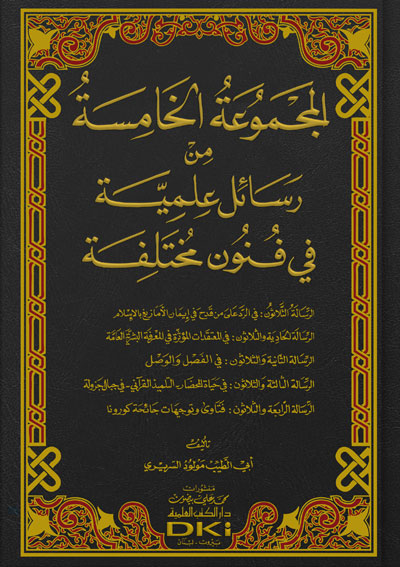 المَجْمُوعَةُ الخَامِسَةُ
مِنْ
رَسَائِل عِلمِيَّة
في فُنُون مُخْتَلِفَة
الرِّسَالَةُ الثَّلاثُونُ: في الرد على من قدح في إيمان الأمازيغ بالإسلام
الرسالة الحادية والثلاثون: في المعتقدات المؤثرة في المعرفة الشرعية العامة
الرسالة الثانية والثلاثون: في الفصل والوصل
الرسالة الثالثة والثلاثون: في حياة للمحضار، التلميذ القرآني - في جبال جزولة
الرسالة الرابعة والثلاثون: فتاوى وتوجيهات جائحة كورونا
تأليف
أبي الطيب مولود السريري
منشورات
محمد علي بيضون
دار الكتب العلمية
DKi
بيروت - لبنان